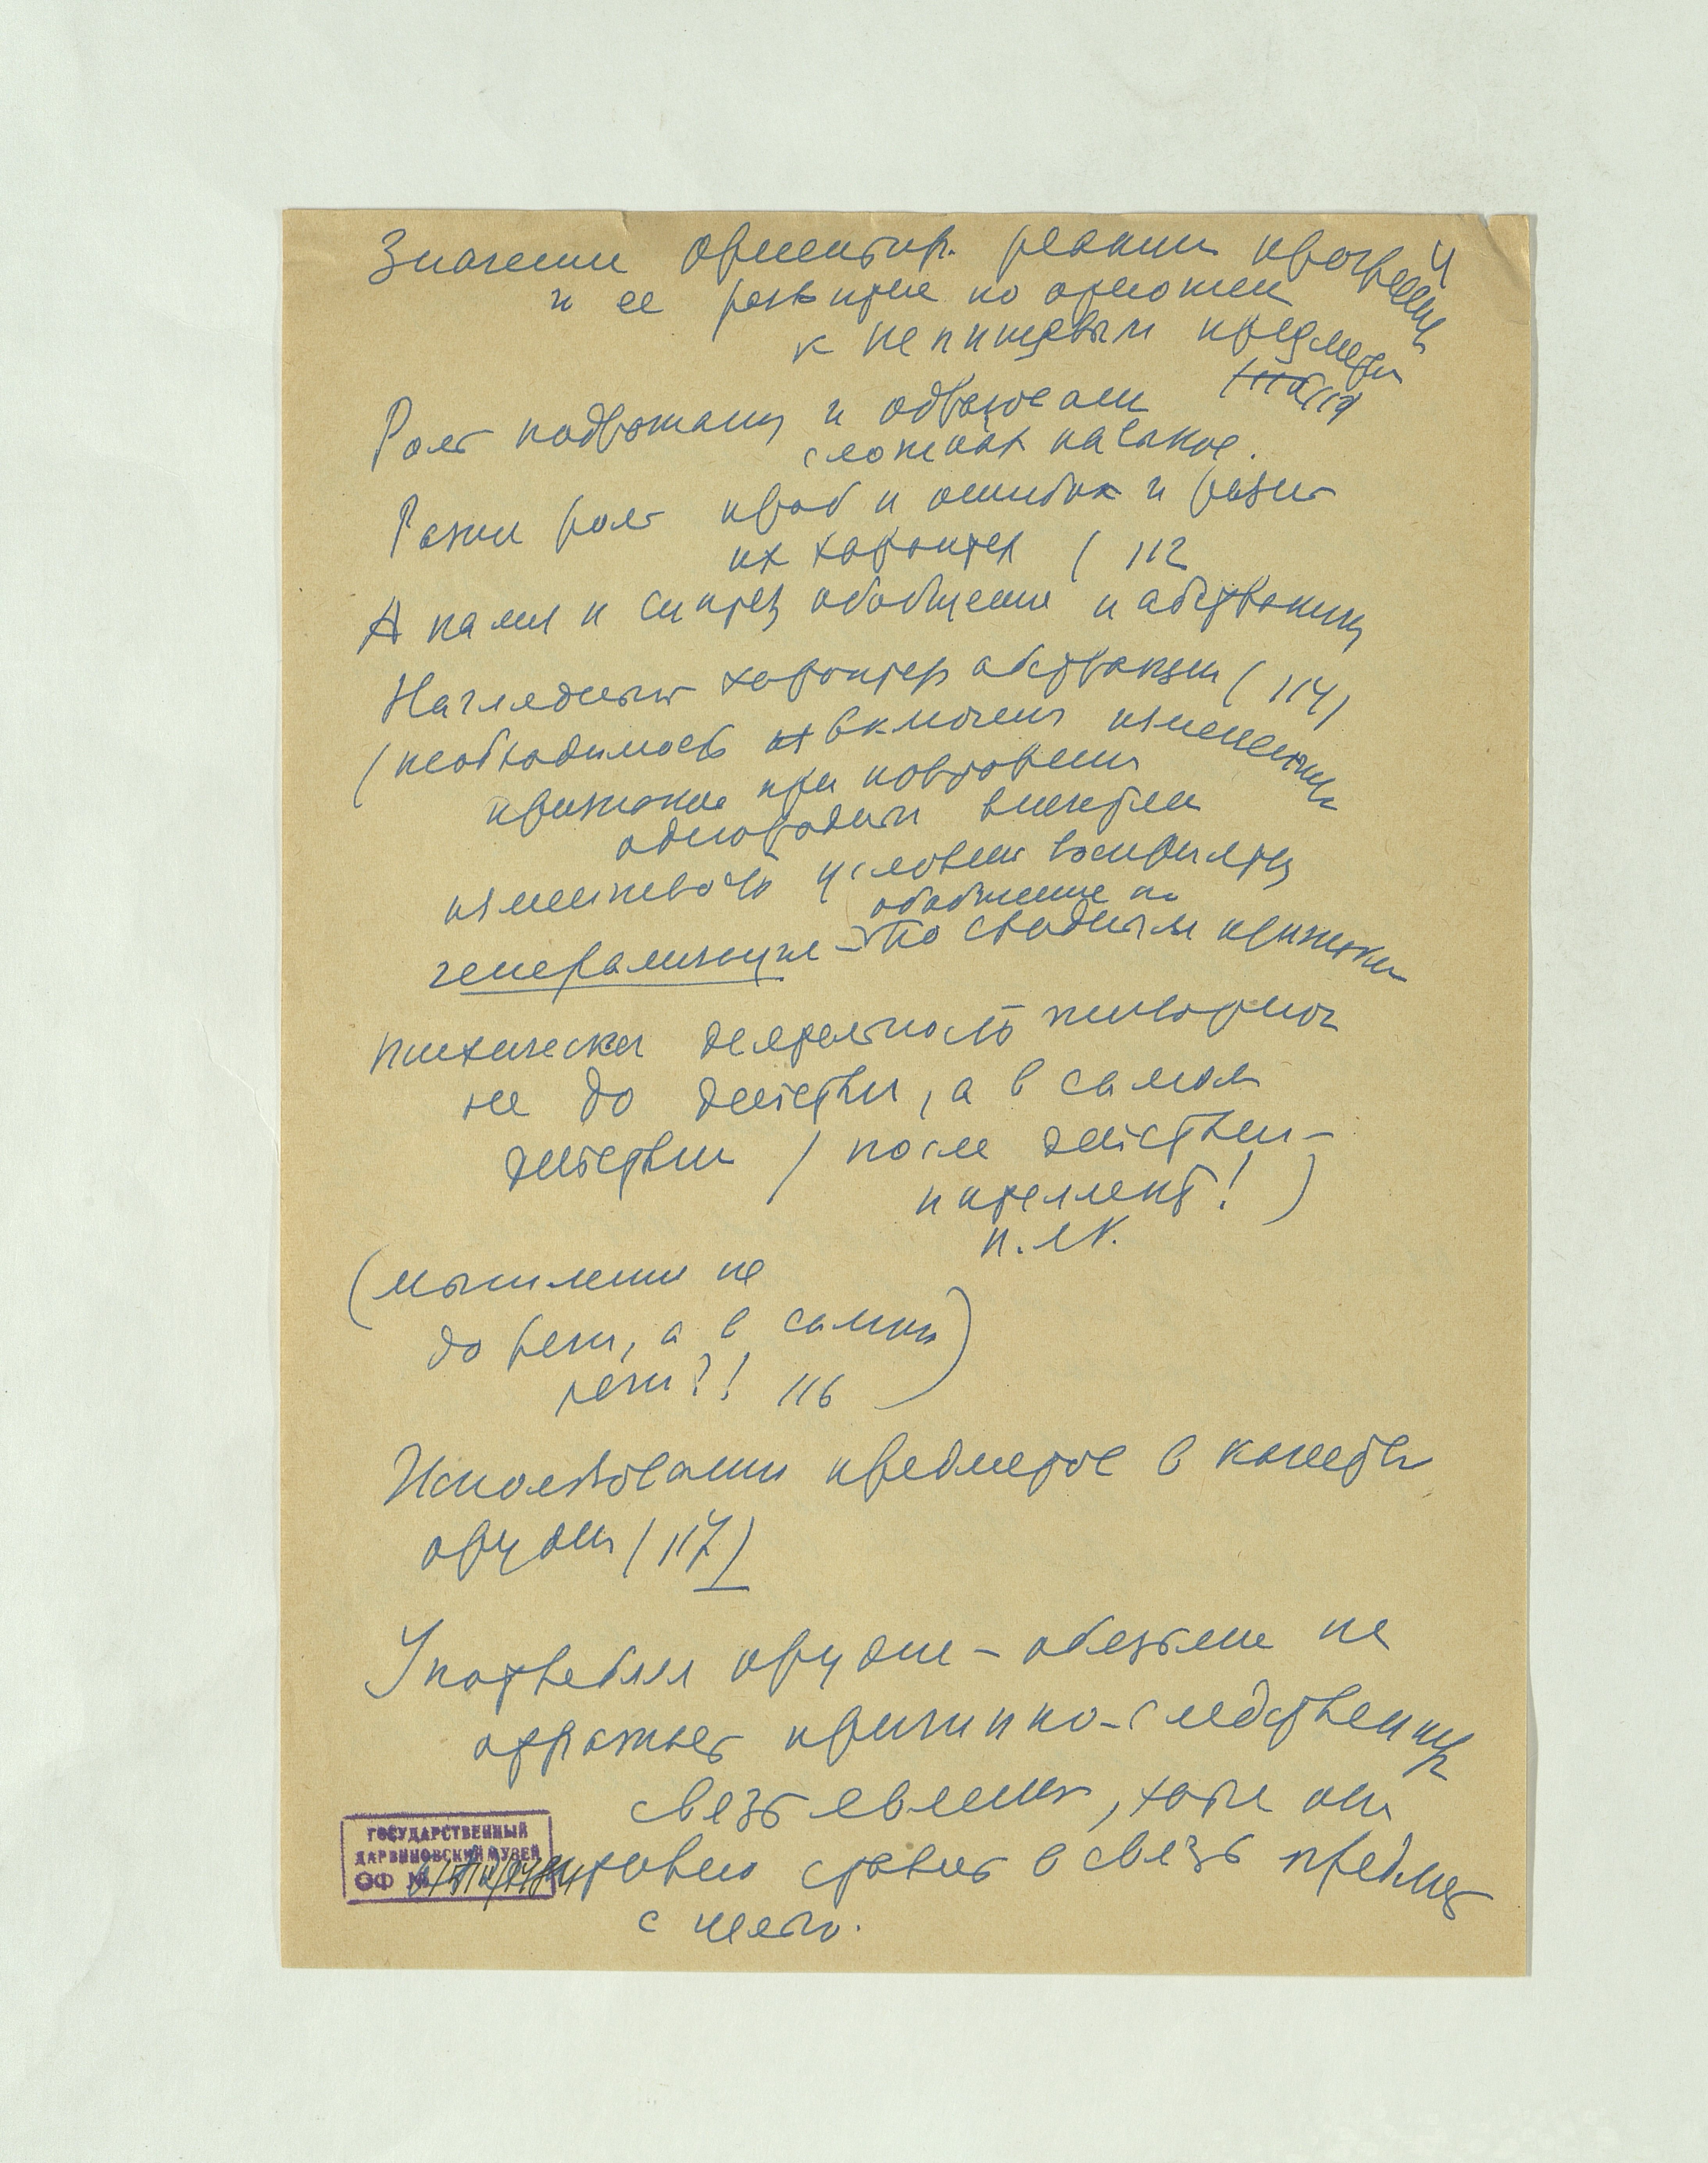 4
Значении ориентир. реакции прогрессив
и ее развитие по отношен
к непищевым предметам
Роль подражания и
сложных навыков.
Разн роль проб и ошибок и разн
их характер ( 112
Анализ и синтез обобщение и абстракция
Наглядный характер абстракции (114)
(необходимость включения
признаков при повторении
однородных
изменчивость условий
обобщение по
генерализация – по сводным признакам
психическая деятельность животного
не до действия, а в самом
действии / после действия –
интеллект! )
Н. Л.К.
(мышление не
до речи, а в самой)
речи?! 116
Использование предметов в качестве
орудия (117)
Употребляя орудие – обезьяна не
отражает причинно-следственную
связь явлений, хотя он
ставит в связь предмет
с целью.
ГОСУДАРСТВЕННЫЙ
ДАРВИНОВСКИЙ МУЗЕЙ
ОФ №